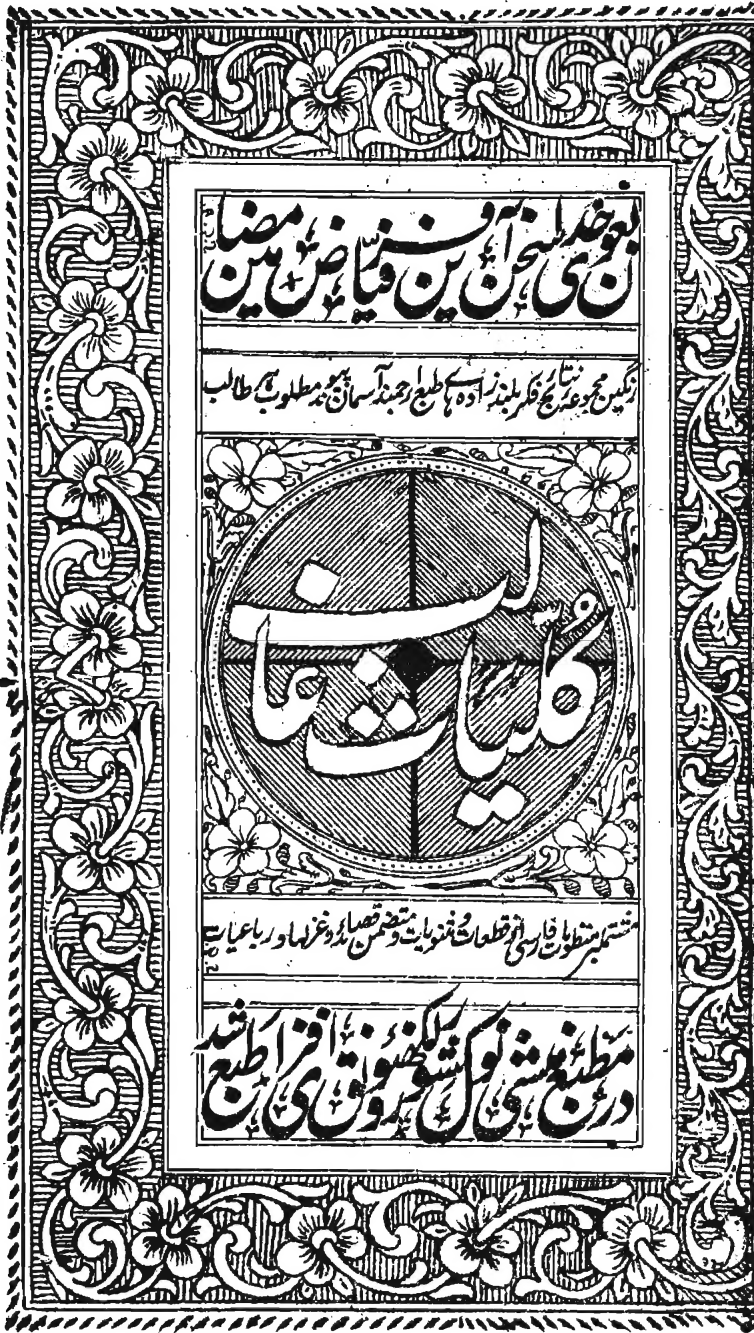 بعون خدای سخن آفرین فیاض مضامین
رنگین مجموعه نتائج فکر بلند زاده های طبع ارجمند آسمان پیوند مطلوب هر طالب
کلیات غالب
مشتمل بر منظومات فارسی از قطعات و مثنویات و متضمن قصائد و غزلها و رباعیات
در مطبع منشی نولکشور لکهنؤ رونق افزای طبع شد